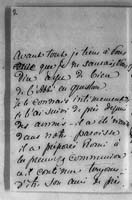 2.
Avant tout je tiens à vous
dire que je ne saurais trop
dire de bien
de l'abbé en question
Je le connais intimement
et l'ai suivi de près depuis
des années. il a été
dans notre paroisse
il a préparé à
la première communion
a continué toujours
d'être son ami de près